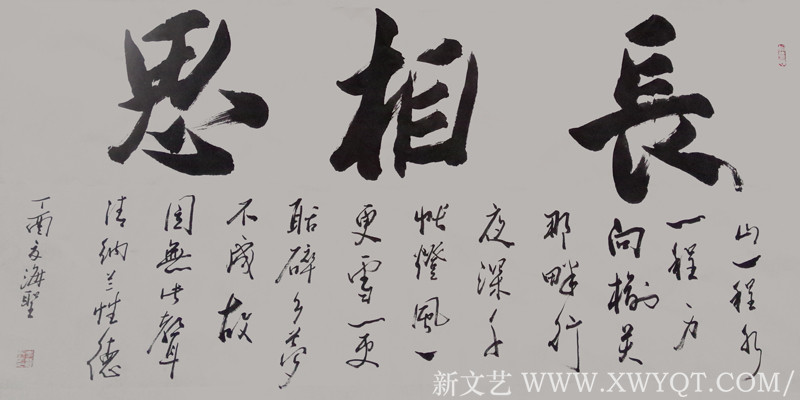 長相思
山一程水
一程身
向榆关
那畔行
夜深千
帳燈風一
更雪一更
聒碎乡夢
不成故
園無此聲
清納兰性德
丁酉夏海聖
新文艺 WWW.XWYQT.COM/